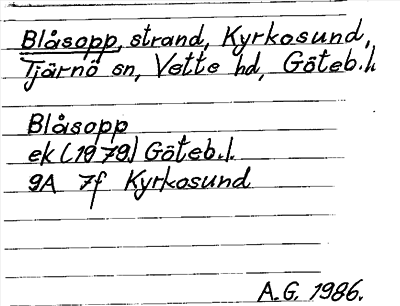 Blåsopp, strand, Kyrkosund,
Tjärnö sn, Vette hd, Göteb.l.
Blåsopp
ek (1979) Göteb.l.
9A 7f Kyrkosund
A.G. 1986.